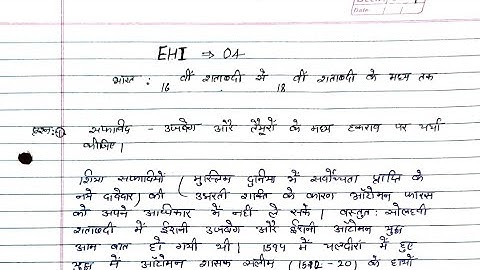 EHI ⇒ 04
भारत : 16 वीं शताब्दी से 18 वीं शताब्दी के मध्य तक
प्रश्न: ① सफाविद - उजबेग और तैमूरों के मध्य टकराव पर चर्चा
कीजिए।
शिया सफाविदों (मुस्लिम दुनिया में सर्वोच्चता प्राप्ति के
नये दावेदार) की उभरती शक्ति के कारण ऑटोमन फारस
को अपने अधिकार में नहीं ले सके। वस्तुत: सोलहवीं
शताब्दी में ईरानी उजबेग और ईरानी ऑटोमन युद्ध
आम बात हो गयी थी। 1514 में चलदीरां में हुए
युद्ध में ऑटोमन शासक सलीम (1512-20) के हाथों